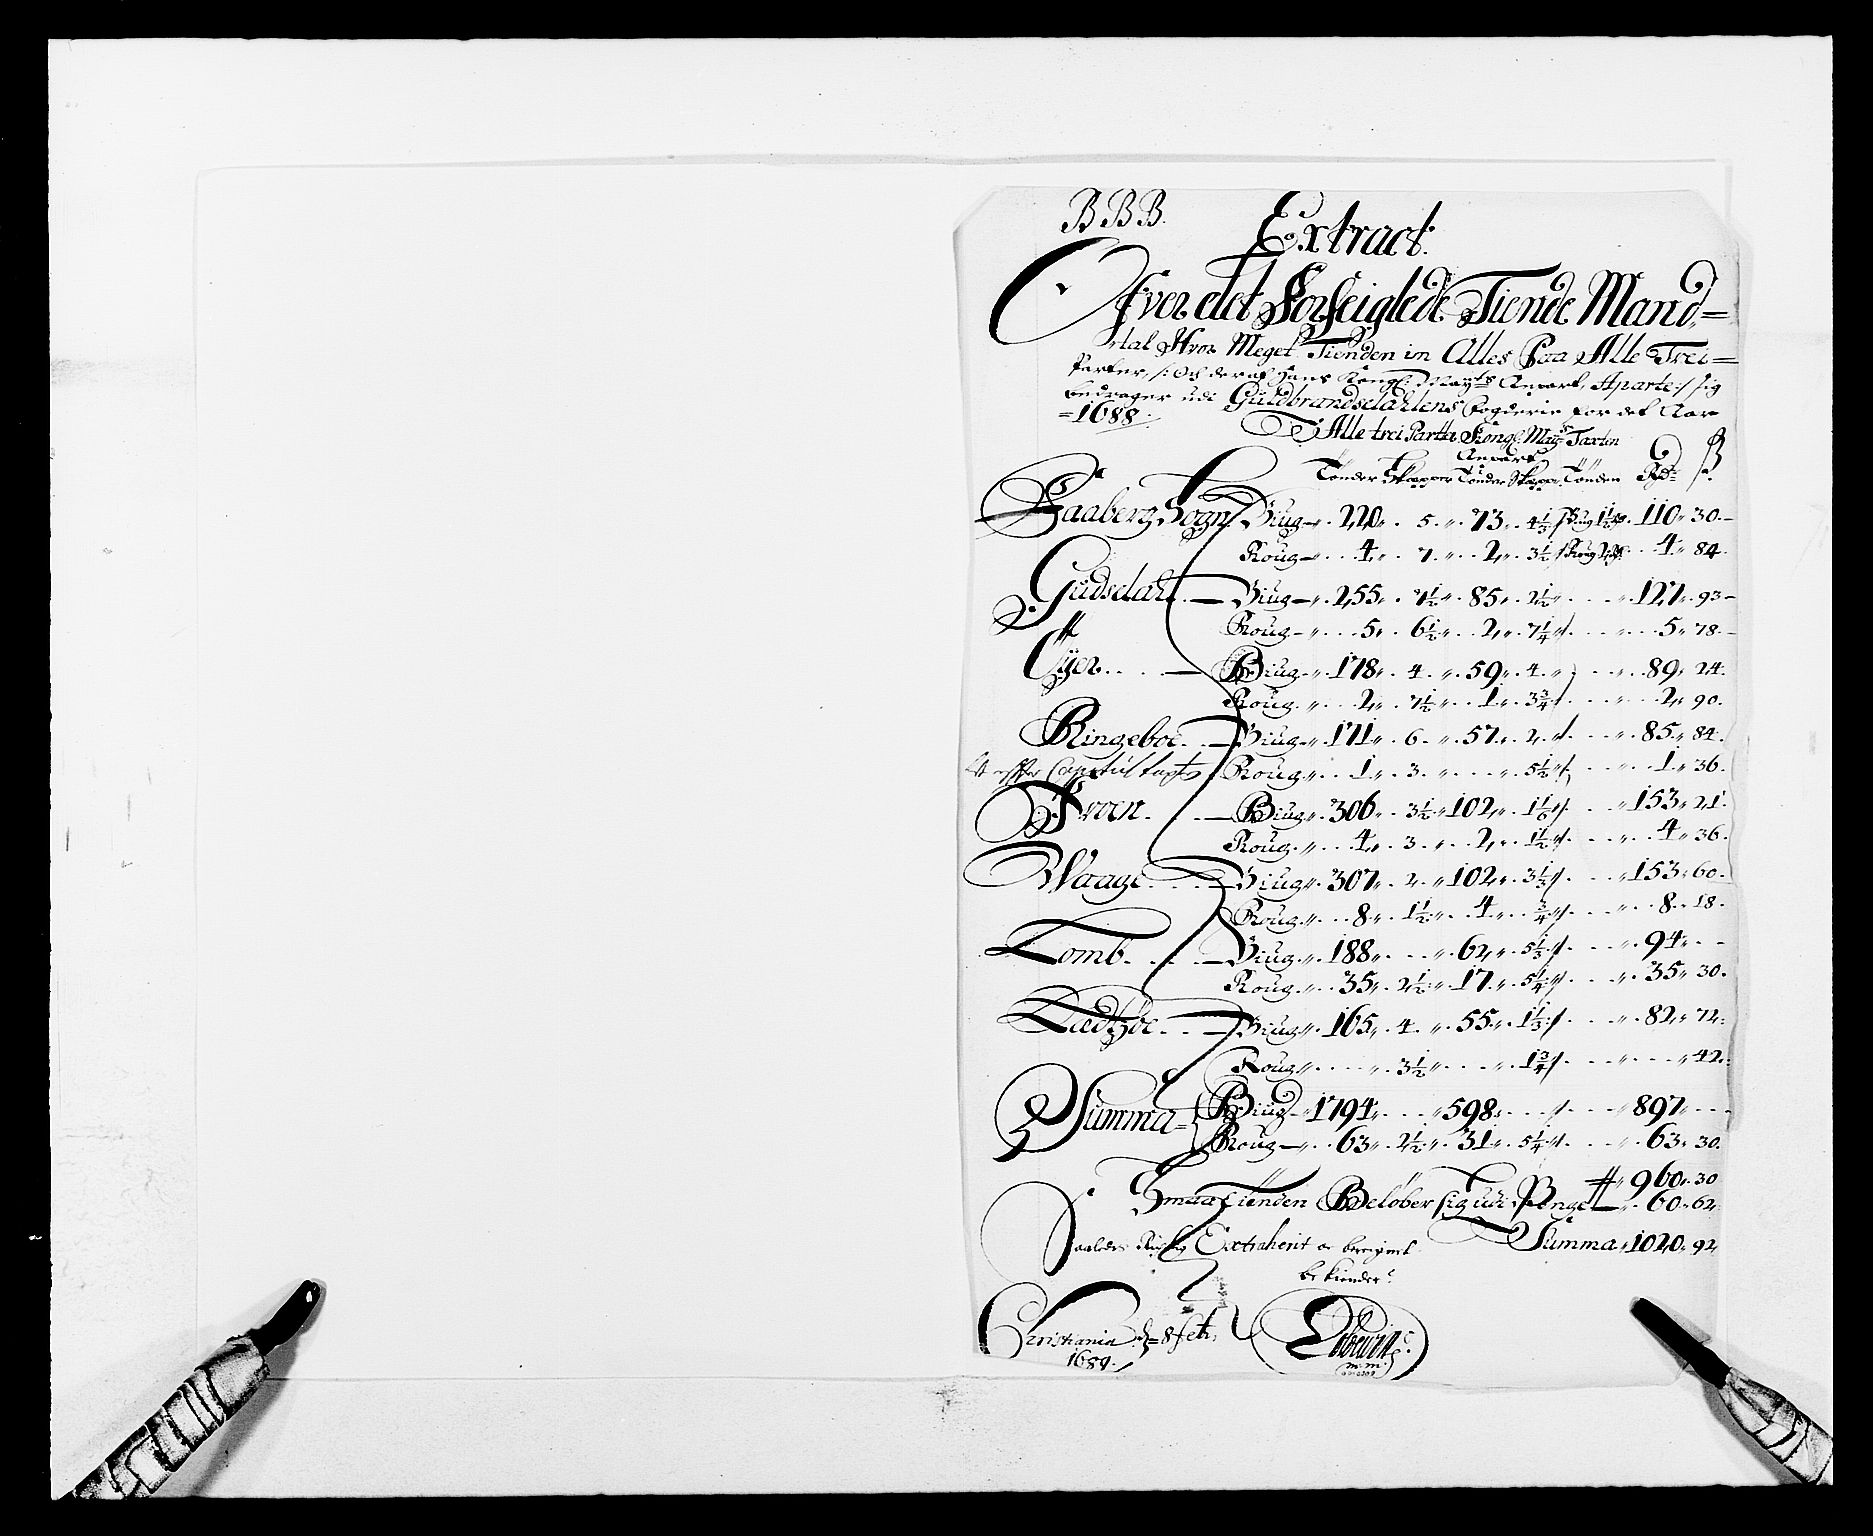 BBB. Extract.
Ofver det Forseiglede Tiende Mand=
tal Hvor Meget Tienden in Alles Paa Alle Trei=
Parter, /: Och deraf Hans Kongl: Mayts Anpart, Aparte :/ sig
bedrager udi Guldbrandsdahlens Fogderie for det Aar
=1688.
Alle trei Parter Kongl: May: Taxten
Anpart
Tønder Skepper Tønder Skepper Tønden Rd: ß
Faaberg Sogn Biug 220 5 73 4 1/3 110 30
Roug 4 7 2 3 1/2 4 84
Gudsdal Biug 255 7 1/2 85 2 1/2 127 93
Roug 5 6 1/2 2 7 1/4 5 78
Øyer Biug 178 4 59 4 89 24
Roug 2 7 1/2 1 3 3/4 2 90
Ringeboe Biug 171 6 57 2 85 84
Roug 1 3 5 1/2 1 36
Froen Biug 306 3 1/2 102 1 1/6 153 21
Roug 4 3 2 1 1/2 4 36
Waage Biug 307 2 102 3 1/3 153 60
Roug 8 1 1/2 4 3/4 8 18
Lomb Biug 188 62 5 1/3 94
Roug 35 2 1/2 17 5 1/4 35 30
Ledsøe Biug 165 4 55 1 1/3 82 72
Roug 3 1/2 1 3/4 42
Summa Biug 1794 598 897
Roug 63 2 1/2 31 5 1/4 63 30
960 30
Smaa Tienden Beløber sig udi Penge 60 62
Saaledes Rigtig Extraherit og beregnet Summa 1020 92
bekiender
Christiania d= 8 feb:
1689.